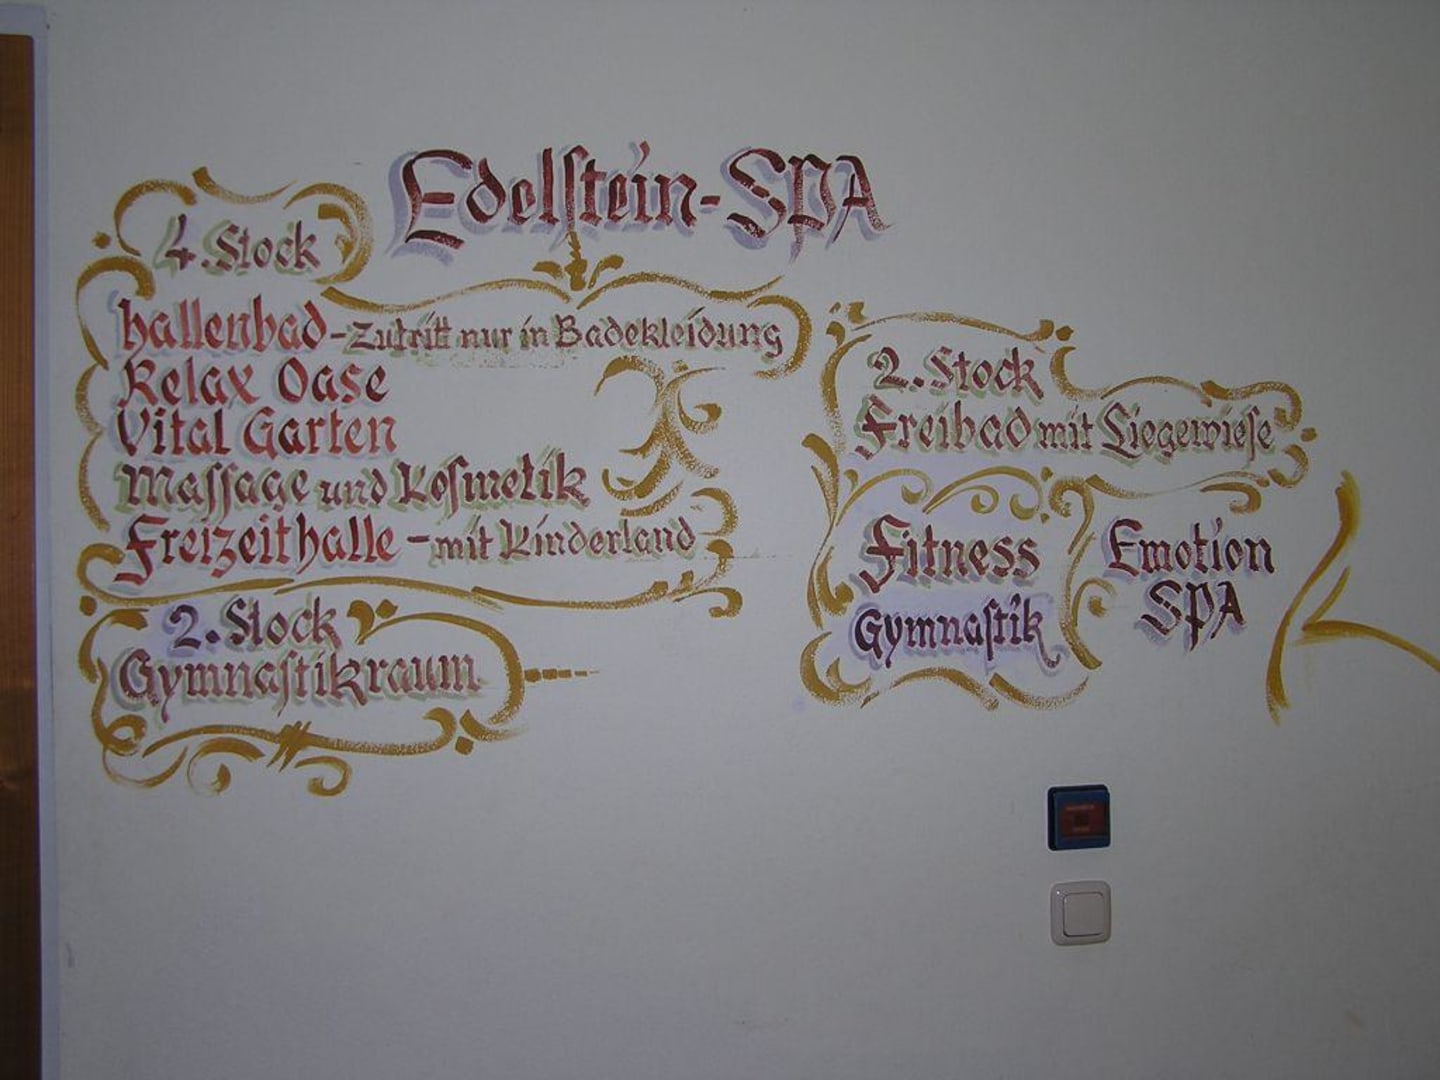 Edelſtein-SPA
4. Stock
Hallenbad - Zutritt nur in Badekleidung
Relax Oase
Vital Garten
Maſſage und Koſmetik
Freizeithalle - mit Kinderland
2. Stock
Gymnaſtikraum
2. Stock
Freibad mit Liegewieſe
Fitness
Gymnaſtik
Emotion
SPA